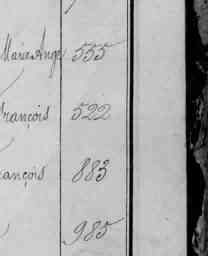 Marie Ange 555
François 522
rançois 883
985